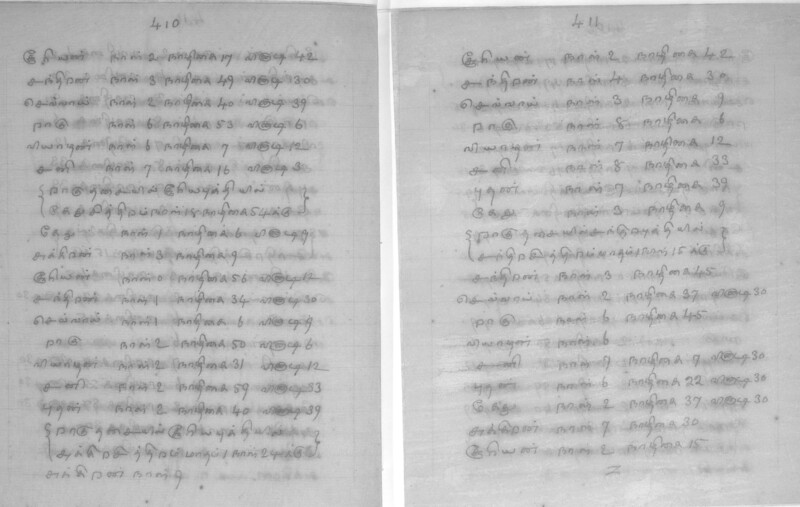 410
சூரியன் நாள் 2 நாழிகை 17 வினாடி 42
சந்திரன் நாள் 3 நாழிகை 49 வினாடி 30
செவ்வாய் நாள் 2 நாழிகை 40 வினாடி 39
ராகு நாள் 6 நாழிகை 53 வினாடி 6
வியாழன் நாள் 6 நாழிகை 7 வினாடி 12
சனி நாள் 7 நாழிகை 16 வினாடி 3
ராகு தசையில் சூரியபுத்தியில்
கேது நாள் 18 நாழிகை 54க்கு
கேது நாள் 1 நாழிகை 6 வினாடி 9
சுக்கிரன் நாள் 3 நாழிகை 9
சூரியன் நாள் 0 நாழிகை 56 வினாடி
சந்திரன் நாள் 1 நாழிகை 34 வினாடி 30
செவ்வாய் நாள் 1 நாழிகை 6 வினாடி 9
ராகு நாள் 2 நாழிகை 50 வினாடி 6
வியாழன் நாள் 2 நாழிகை 31 வினாடி 12
சனி நாள் 2 நாழிகை 59 வினாடி 33
புதன் நாள் 2 நாழிகை 40 வினாடி 39
ராகு தசையில் சூரியபுத்தியில்
நாள் 24க்கு
சுக்கிரன் நாள் 9
411
சூரியன் நாள் 2 நாழிகை 42
சந்திரன் நாள் 4 நாழிகை 30
செவ்வாய் நாள் 3 நாழிகை 9
ராகு நாள் 8 நாழிகை 6
வியாழன் நாள் 7 நாழிகை 12
சனி நாள் 8 நாழிகை 33
புதன் நாள் 7 நாழிகை 39
கேது நாள் 3 நாழிகை 9
ராகு தசையில் சந்திரபுத்தியில்
நாள் 15க்கு
சந்திரன் நாள் 3 நாழிகை 45
செவ்வாய் நாள் 2 நாழிகை 37 வினாடி 30
ராகு நாள் 6 நாழிகை 45
வியாழன் நாள் 6
சனி நாள் 7 நாழிகை 7 வினாடி 30
புதன் நாள் 6 நாழிகை 22 வினாடி 30
கேது நாள் 2 நாழிகை 37 வினாடி 30
சுக்கிரன் நாள் 7 நாழிகை 30
சூரியன் நாள் 2 நாழிகை 15